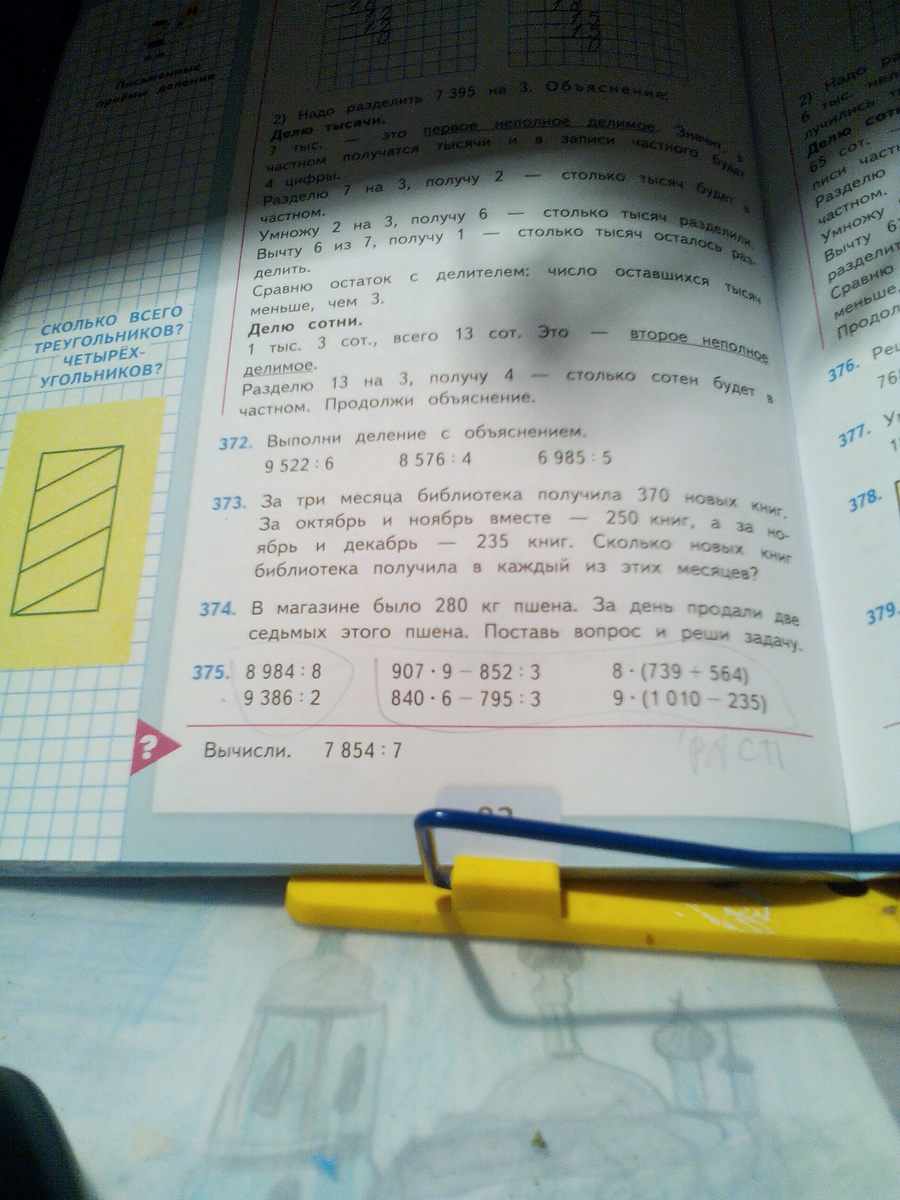 Письменные
приёмы деления
2) Надо разделить 7 395 на 3. Объяснение:
Делю тысячи.
7 тыс. — это первое неполное делимое. Значит, в
частном получатся тысячи и в записи частного будет
4 цифры.
Разделю 7 на 3, получу 2 — столько тысяч будет в
частном.
Умножу 2 на 3, получу 6 — столько тысяч разделили.
Вычту 6 из 7, получу 1 — столько тысяч осталось раз-
делить.
Сравню остаток с делителем: число оставшихся тысяч
меньше, чем 3.
Делю сотни.
1 тыс. 3 сот., всего 13 сот. Это — второе неполное
делимое.
Разделю 13 на 3, получу 4 — столько сотен будет в
частном. Продолжи объяснение.
СКОЛЬКО ВСЕГО
ТРЕУГОЛЬНИКОВ?
ЧЕТЫРЁХ-
УГОЛЬНИКОВ?
372. Выполни деление с объяснением.
9 522 : 6 8 576 : 4 6 985 : 5
373. За три месяца библиотека получила 370 новых книг.
За октябрь и ноябрь вместе — 250 книг, а за но-
ябрь и декабрь — 235 книг. Сколько новых книг
библиотека получила в каждый из этих месяцев?
374. В магазине было 280 кг пшена. За день продали две
седьмых этого пшена. Поставь вопрос и реши задачу.
375. 8 984 : 8 907 · 9 − 852 : 3 8 · (739 + 564)
9 386 : 2 840 · 6 − 795 : 3 9 · (1 010 − 235)
? Вычисли. 7 854 : 7
2) Надо
6 тыс.
лучились
Делю
65 сот. —
писи
Разделю
частном.
Умножу
Вычту
разделит
Сравню
меньше,
Продол
376. Реш
377.
378.
379.